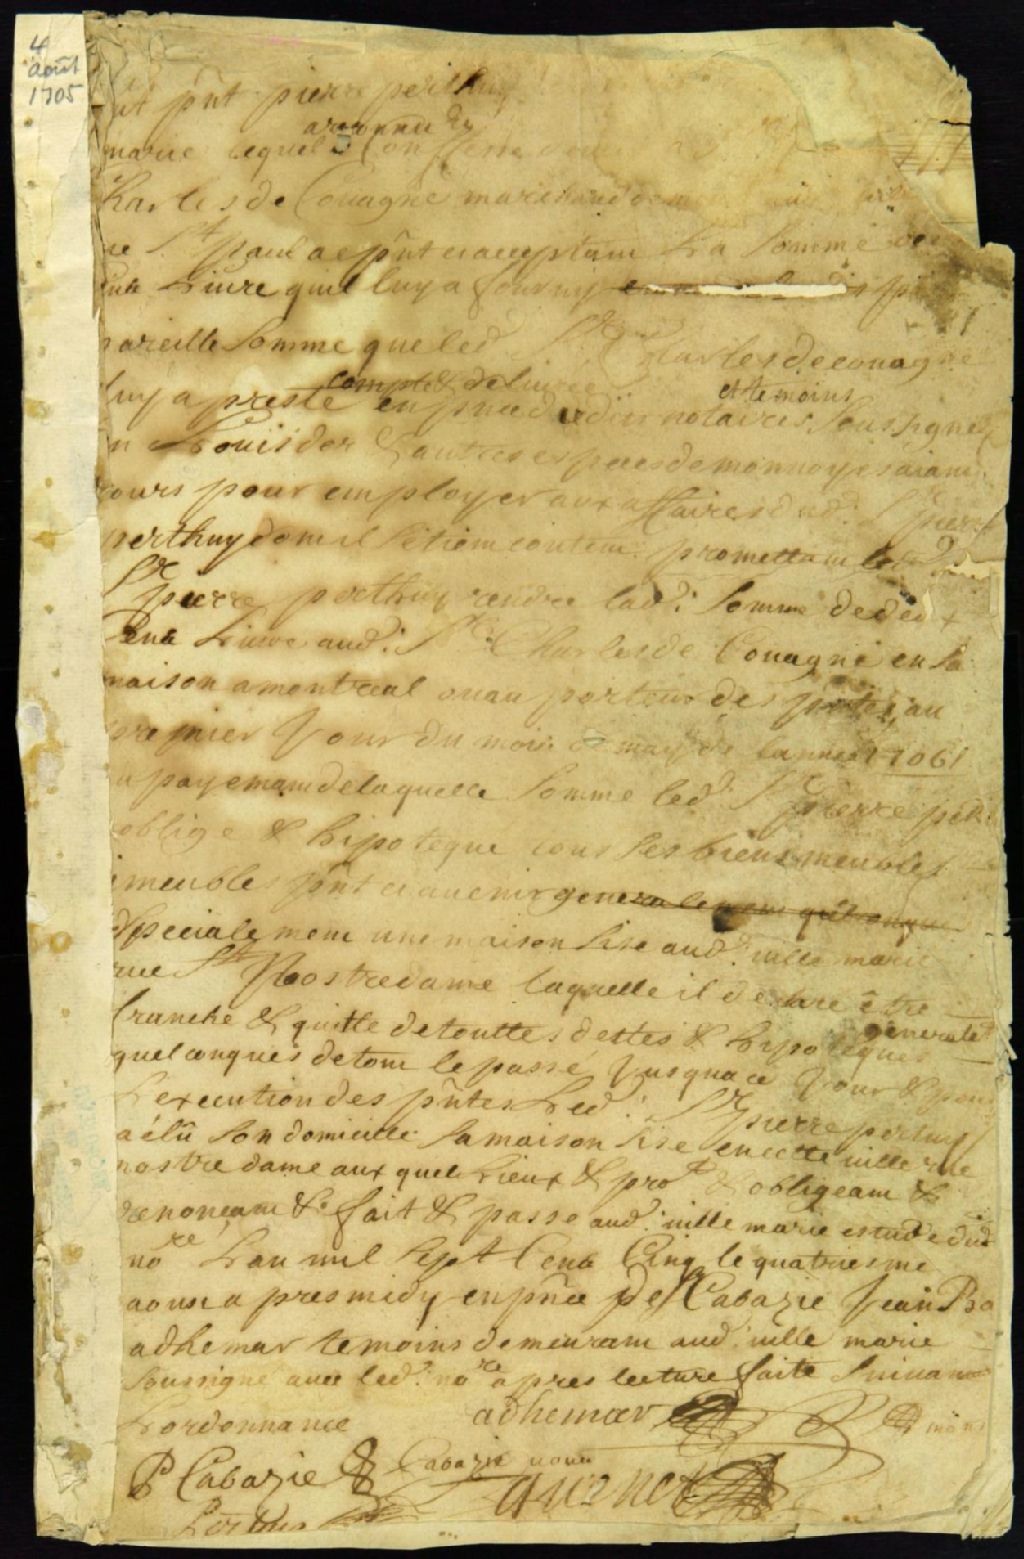 4
août
1705
fut pñt pierre perthuy
a reconnu &
marie lequel Confesse
Charles de Couagne marchand
rue St paul a ce pñt et acceptant La Somme de
Livre quil luy a fourny
pareille Somme que led. Sr Charles de couagne
compté & delivrée et temoins
luy a presté en pñce dud. notaire Soussignez
en Louis dor & autres especes de monnoyes aiant
cours pour employer aux affaires dud. Sr pierre
perthuy dont il Setient content promettant led.
Sr pierre perthuy rendre lad. Somme de deux
Cent Livre aud. Sr Charles de Couagne en Sa
maison a montreal ou au porteur des pñtes, au
premier Jour du mois de may de lannée 1706
payement de laquelle Somme led. Sr pierre perth
oblige & hipoteque tous Ses biens meubles
imeubles pñt et avenir generalement quelconques
& Specialement une maison Sise aud. ville marie
rue St Nostredame laquelle il declare être
franche & quitte de touttes dettes & hipoteques
generalet
quelconques de tout le passé Jusqua ce Jour & pour
Lexecution des pñtes Led. Sr pierre perthuy
a élû Son domicille Sa maison Sise en cette ville rue
nostre dame auxquel Lieux & prot & obligeant &
renonceant &c fait & passe aud. ville marie estude dud
nore Lan mil Sept Cent Cinq le quatriesme
aoust apres midy en pñce de Cabazie Jean Ba
adhemar temoins demeurant aud. ville marie
Soussigné avec led. nore apres lecture faite Suivant
Lordonnance
adhemar
P Cabazie